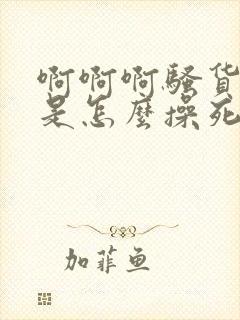 啊啊啊骚货
是怎麽操死
加菲鱼